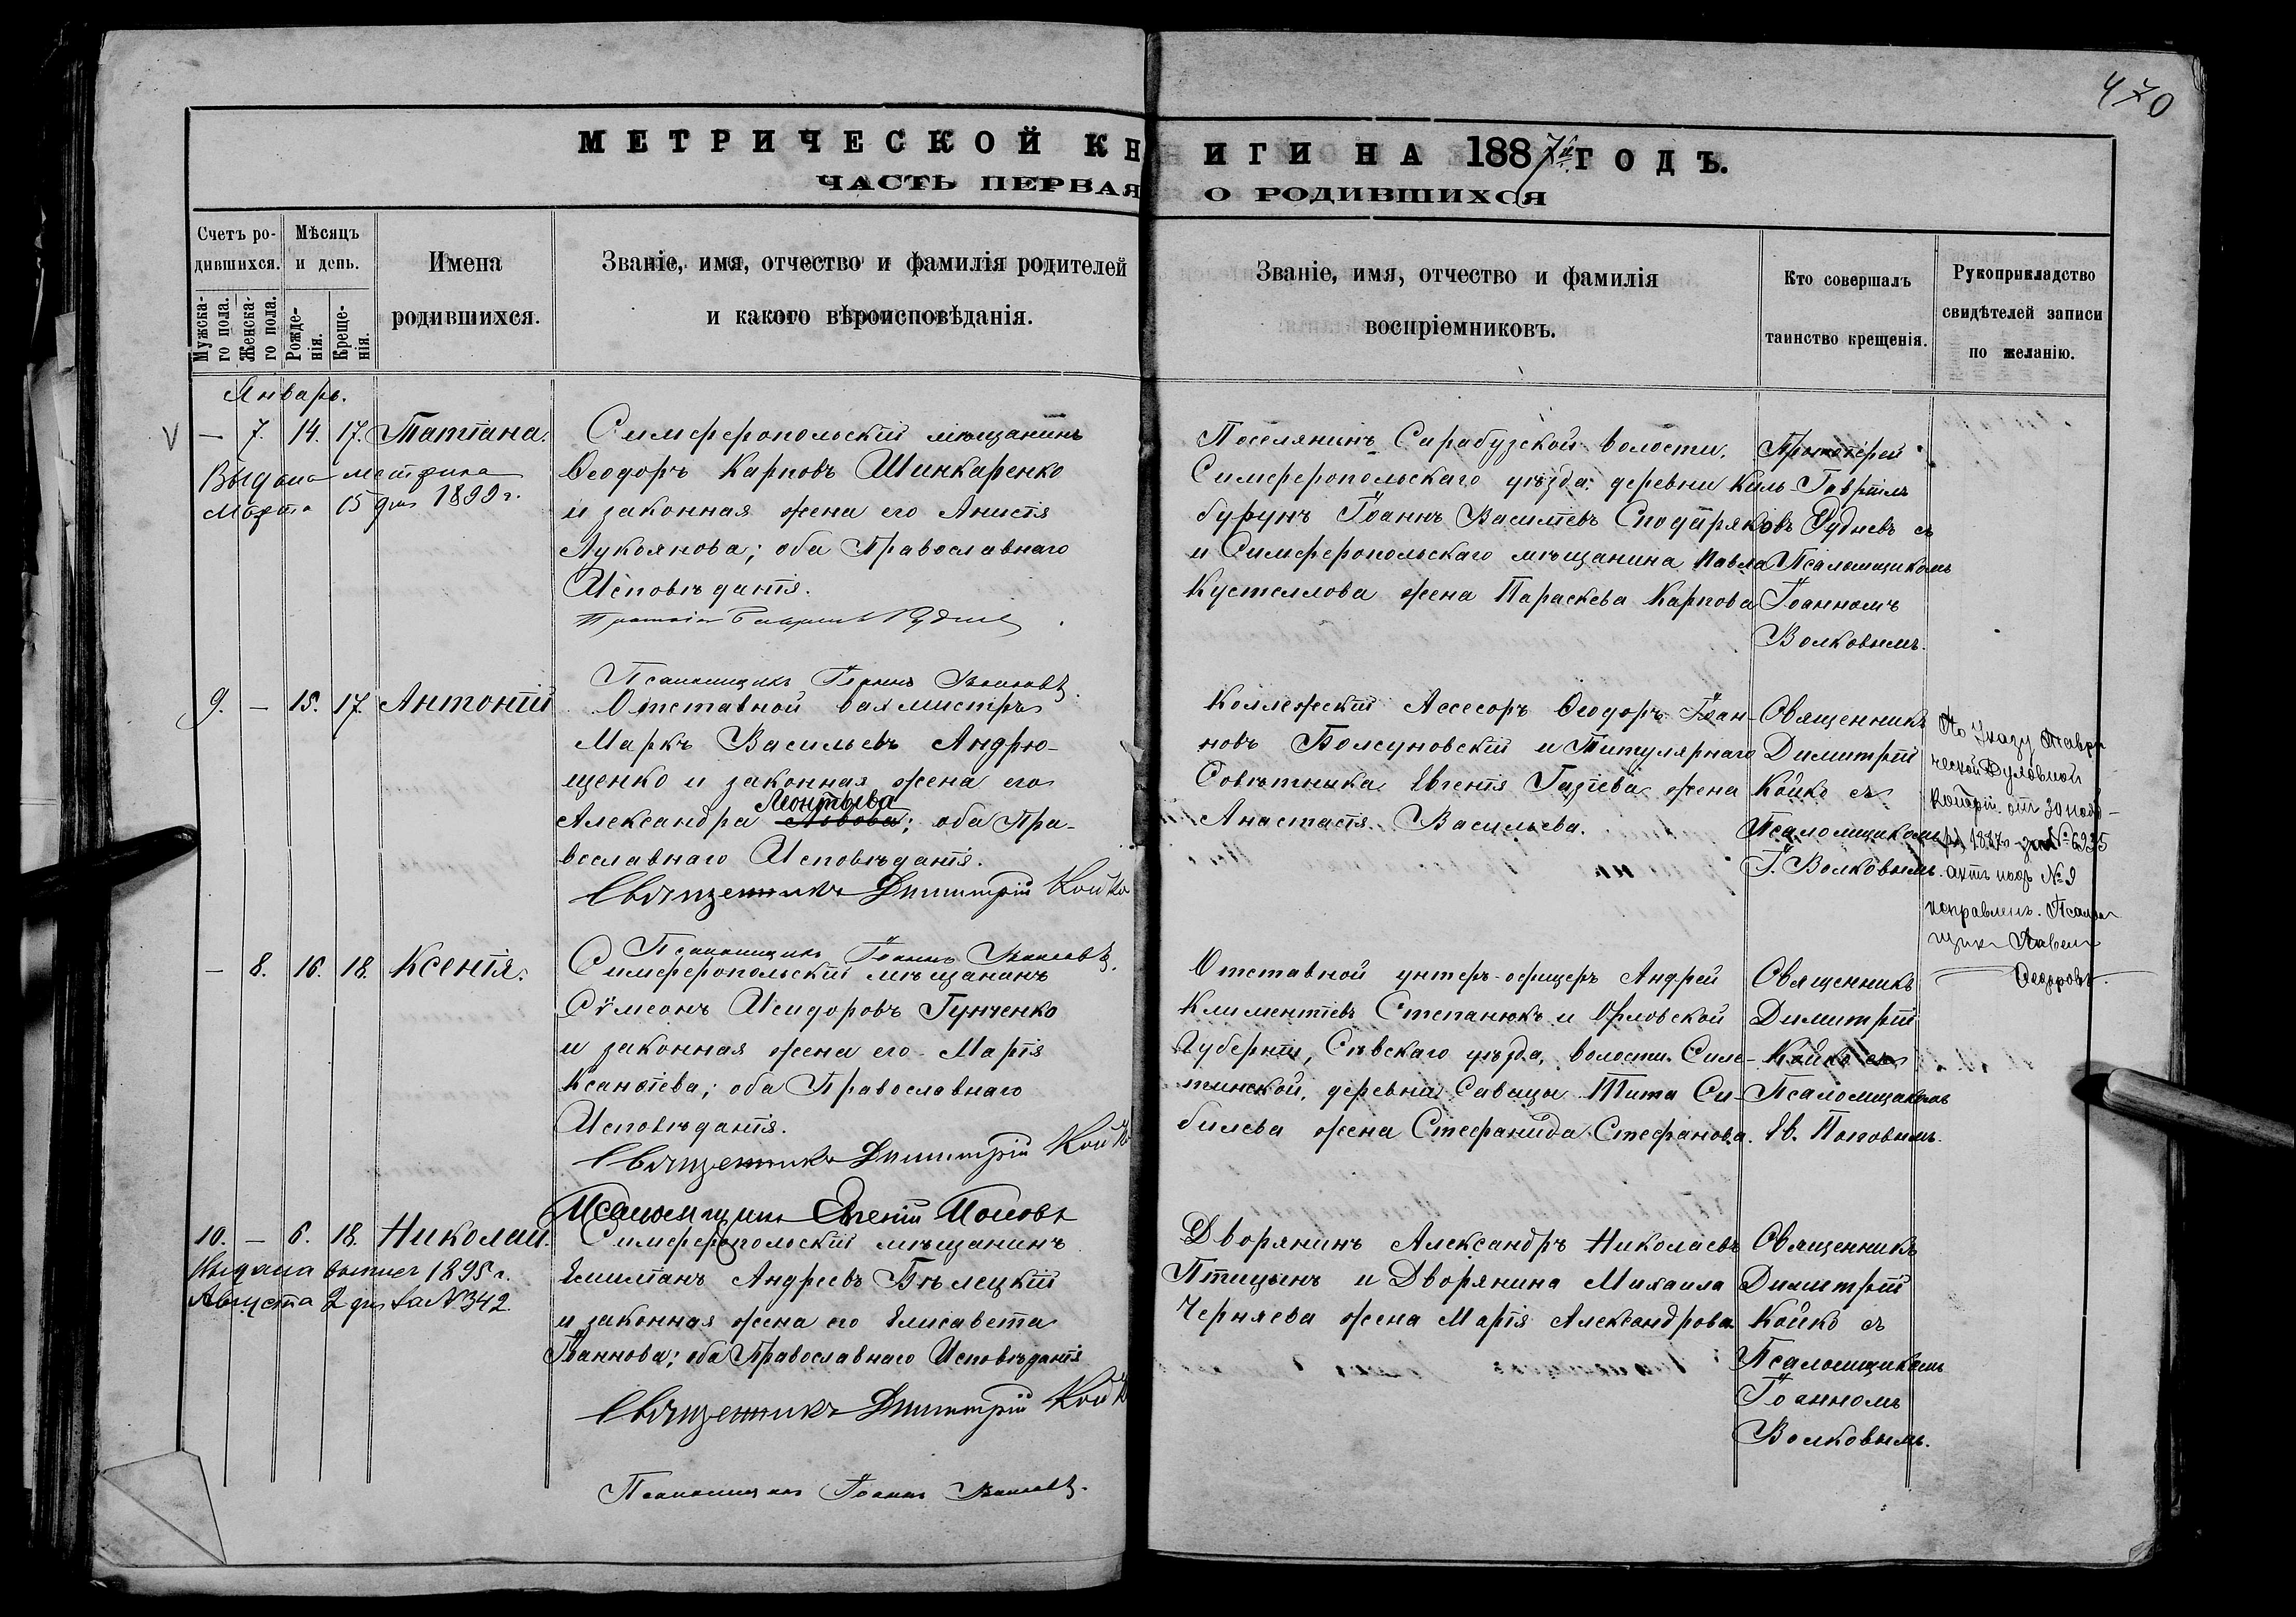 470
МЕТРИЧЕСКОЙ КНИГИ НА 1887й ГОДЪ.
ЧАСТЬ ПЕРВАЯ О РОДИВШИХСЯ
Счетъ ро-
дившихся.
Мужска-
го пола.
Женска-
го пола.
Мѣсяцъ
и день.
Рожде-
нія.
Креще-
нія.
Имена
родившихся.
Званіе, имя, отчество и фамилія родителей
и какого вѣроисповѣданія.
Званіе, имя, отчество и фамилія
воспріемниковъ.
Кто совершалъ
таинство крещенія.
Рукоприкладство
свидѣтелей записи
по желанію.
Январь.
— 7. 14. 17. Татіана.
Выдана метрика
Марта 15 дня 1899 г.
Симферопольскій мѣщанинъ
Ѳеодоръ Карповъ Шинкаренко
и законная жена его Анисія
Лукоянова; оба Православнаго
Исповѣданія.
Псаломщикъ Іоаннъ Волковъ.
Поселянинъ Сарабузской волости,
Симферопольскаго уѣзда, деревни Киль-
бурунъ Іоаннъ Василіевъ Сподаряковъ
и Симферопольскаго мѣщанина Павла
Кустелова жена Параскева Карпова
Протоіерей
Гавріилъ
Рудневъ съ
Псаломщикомъ
Іоанномъ
Волковымъ.
9. — 15. 17. Антоній
Отставной вахмистръ
Маркъ Васильевъ Андрю-
щенко и законная жена его
Леонтьева
Александра Львова; оба Пра-
вославнаго Исповѣданія.
Священникъ Димитрій Койко
Псаломщикъ Іоаннъ Волковъ.
Коллежскій Ассесоръ Ѳеодоръ Іоан-
новъ Болсуновскій и Титулярнаго
Совѣтника Евгенія Газіева жена
Анастасія Васильева.
Священникъ
Димитрій
Койко съ
Псаломщикомъ
І. Волковымъ.
По Указу Таври
ческой Духовной
Консіріи отъ 30 нояб-
ря 1887 г за № 6935
актъ подъ № 9
исправленъ. Псалом
щикъ Павелъ
Ѳедоровъ.
— 8. 16. 18. Ксенія.
Симферопольскій мѣщанинъ
Сѵмеонъ Исидоровъ Гунченко
и законная жена его Марія
Ксанѳіева; оба Православнаго
Исповѣданія.
Священникъ Димитрій Койк
Псаломщикъ Евгеній Поповъ
Отставной унтеръ-офицеръ Андрей
Климентіевъ Степанюкъ и Орловской
Губерніи, Сѣвскаго уѣзда, волости Силе-
тинской, деревни Савицы Тита Си-
билева жена Стефанида Стефанова.
Священникъ
Димитрій
Койко съ
Псаломщикомъ
Ев. Поповымъ.
10. — 6. 18. Николай.
Выдана выпись 1895 г.
Августа 2 дня за № 342.
Симферопольскій мѣщанинъ
Емиліанъ Андреевъ Бѣлецкій
и законная жена его Елисавета
Іоаннова; оба Православнаго Исповѣданія
Священникъ Димитрій Койк
Псаломщикъ Іоаннъ Волковъ.
Дворянинъ Александръ Николаевъ
Птицынъ и Дворянина Михаила
Черняева жена Марія Александрова.
Священникъ
Димитрій
Койко съ
Псаломщикомъ
Іоанномъ
Волковымъ.